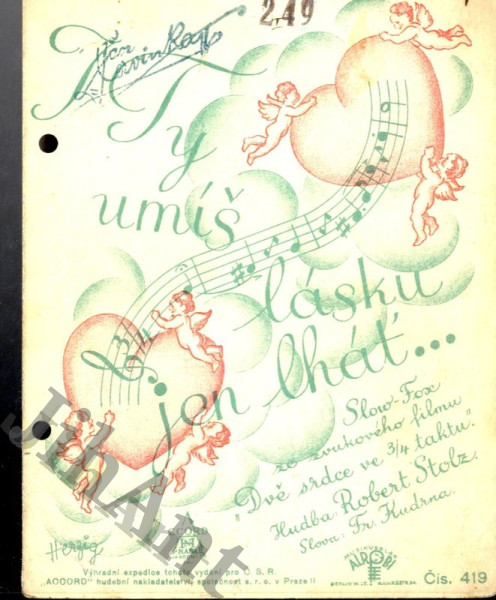 249
Ty
umíš
lásku
jen lhát...
3/4
Slow-Fox
ze zvukového filmu
"Dvě srdce ve 3/4 taktu".
Hudba: Robert Stolz.
Slova: Fr. Kudrna.
Herzig
ACCORD
Výhradní expedice tohoto vydání pro Č. S. R.
"ACCORD" hudební nakladatelství, společnost s. r. o. v Praze II
Čís. 419
JihAnt